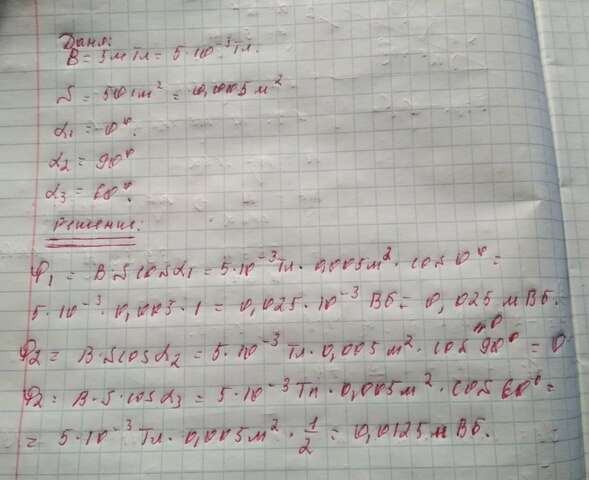 Дано:
B = 5 мТл = 5·10⁻³ Тл.
S = 50 см² = 0,005 м²
α₁ = 0°.
α₂ = 90°
α₃ = 60°.
Решение:
Φ₁ = B·S cosα₁ = 5·10⁻³ Тл · 0,005 м² · cos 0° =
5·10⁻³ · 0,005 · 1 = 0,025·10⁻³ Вб = 0,025 мВб.
Φ₂ = B·S cosα₂ = 5·10⁻³ Тл · 0,005 м² · cos 90° = 0
Φ₂ = B·S·cosα₃ = 5·10⁻³ Тл · 0,005 м² · cos 60° =
= 5·10⁻³ Тл · 0,005 м² · 1/2 = 0,0125 мВб.